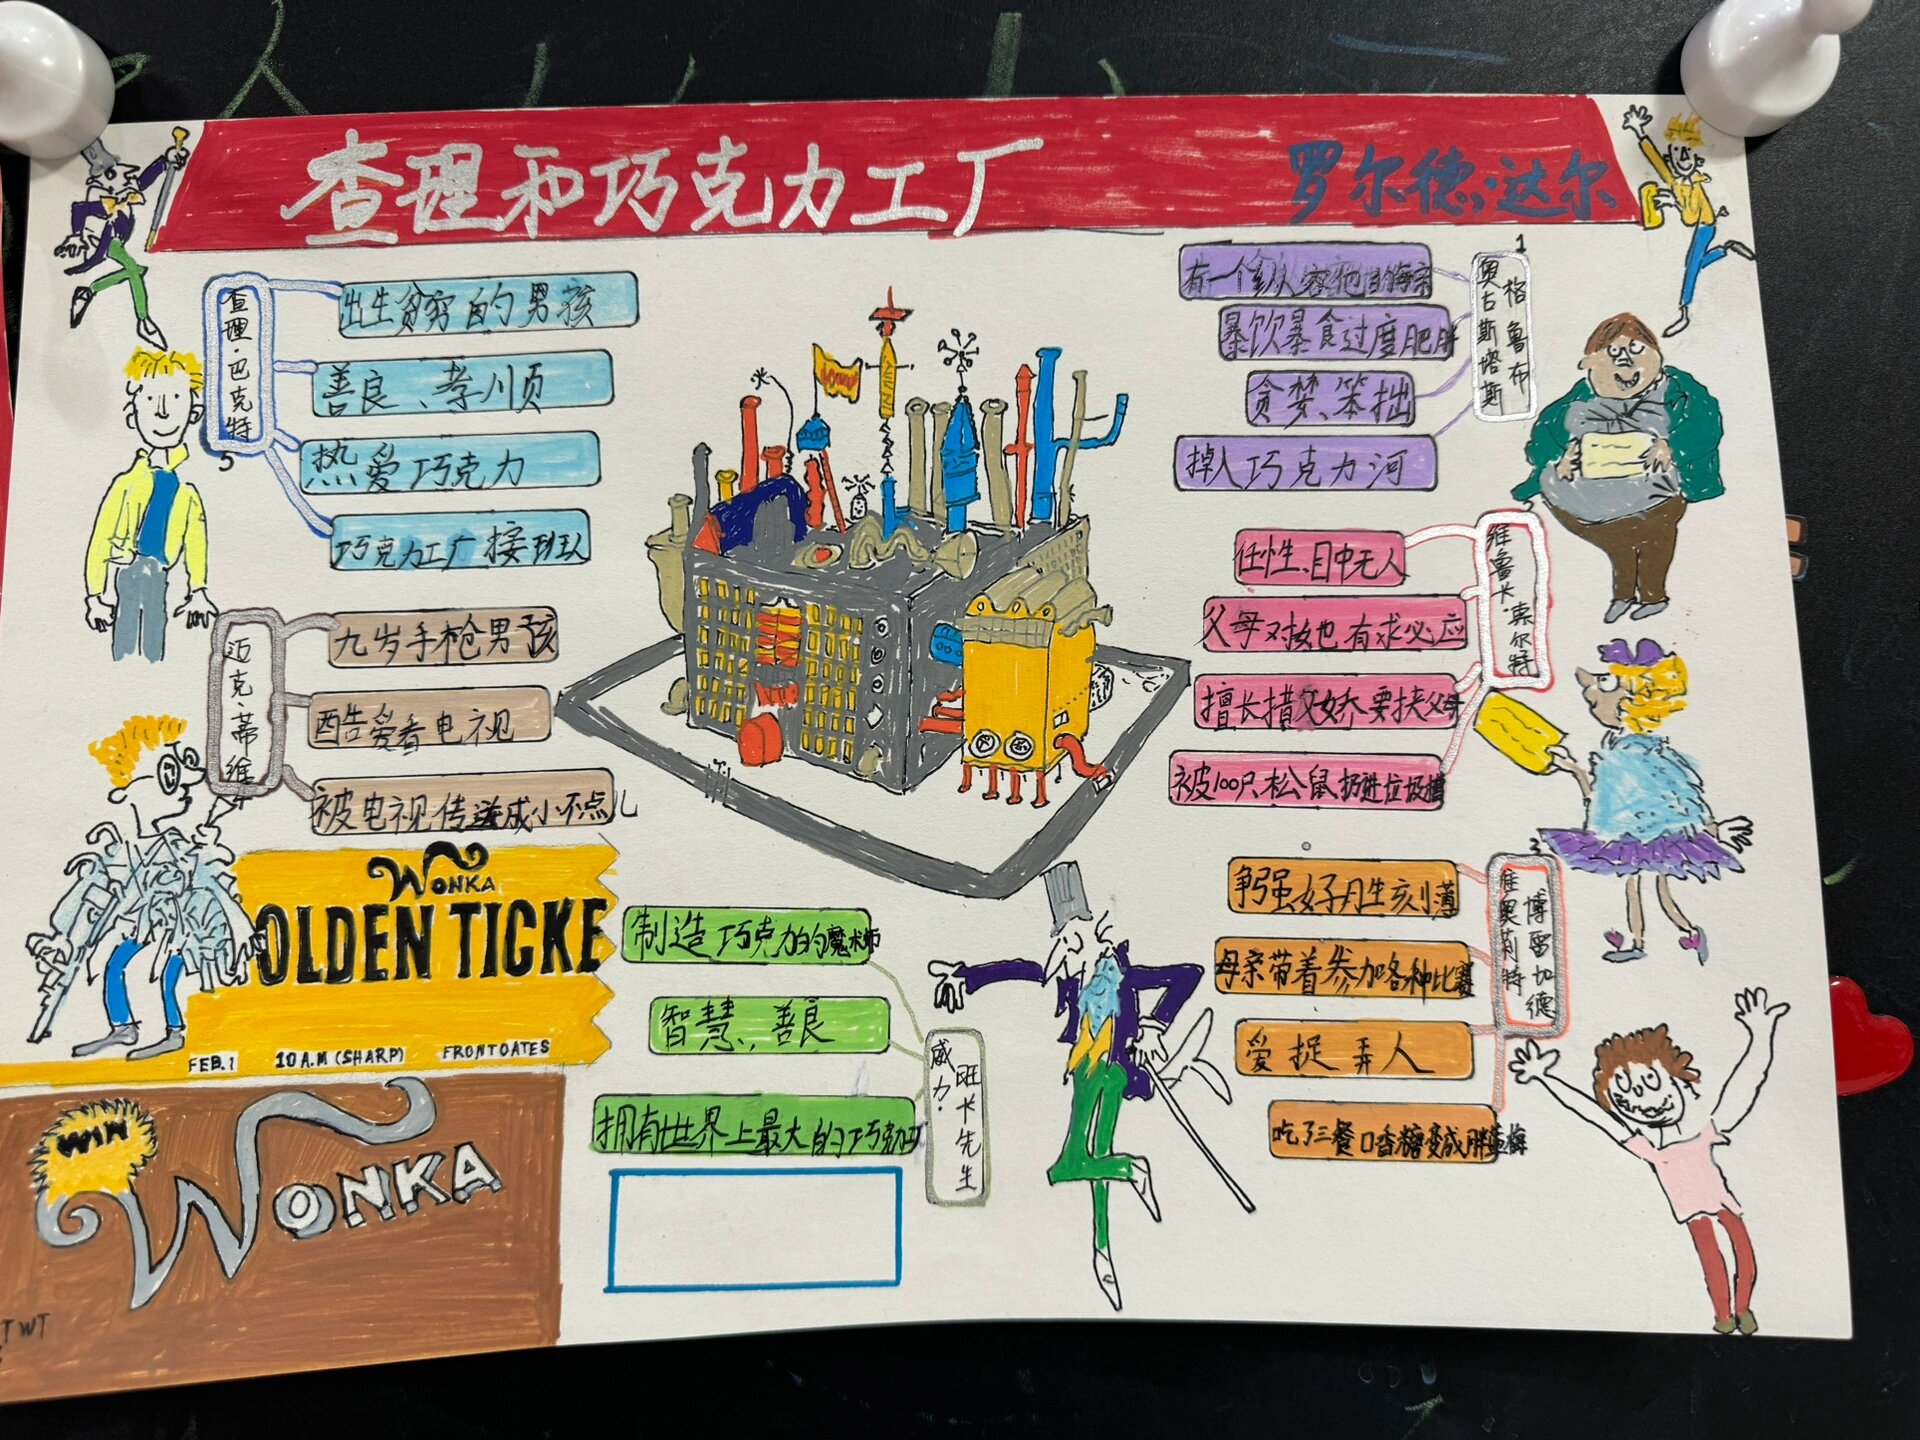 查理和巧克力工厂
罗尔德·达尔
查理·巴克特
5
出生贫穷的男孩
善良、孝顺
热爱巧克力
巧克力工厂接班人
迈克·蒂维
4
九岁手枪男孩
酷爱看电视
被电视传送成小不点儿
1
奥古斯塔斯
格鲁布
有一个纵容他的母亲
暴饮暴食过度肥胖
贪婪、笨拙
掉入巧克力河
2
维鲁卡·索尔特
任性、目中无人
父母对她也有求必应
擅长撒娇要挟父母
被100只松鼠扔进垃圾槽
3
维奥莉特
博雷加德
争强好胜刻薄
母亲带着参加各种比赛
爱捉弄人
吃了三餐口香糖变成胖蓝莓
威力·
旺卡先生
制造巧克力的魔术师
智慧、善良
拥有世界上最大的巧克力工厂
WONKA
OLDEN TICKE
FEB.1 10 A.M (SHARP) FRONT OATES
WIN
WONKA
TWT